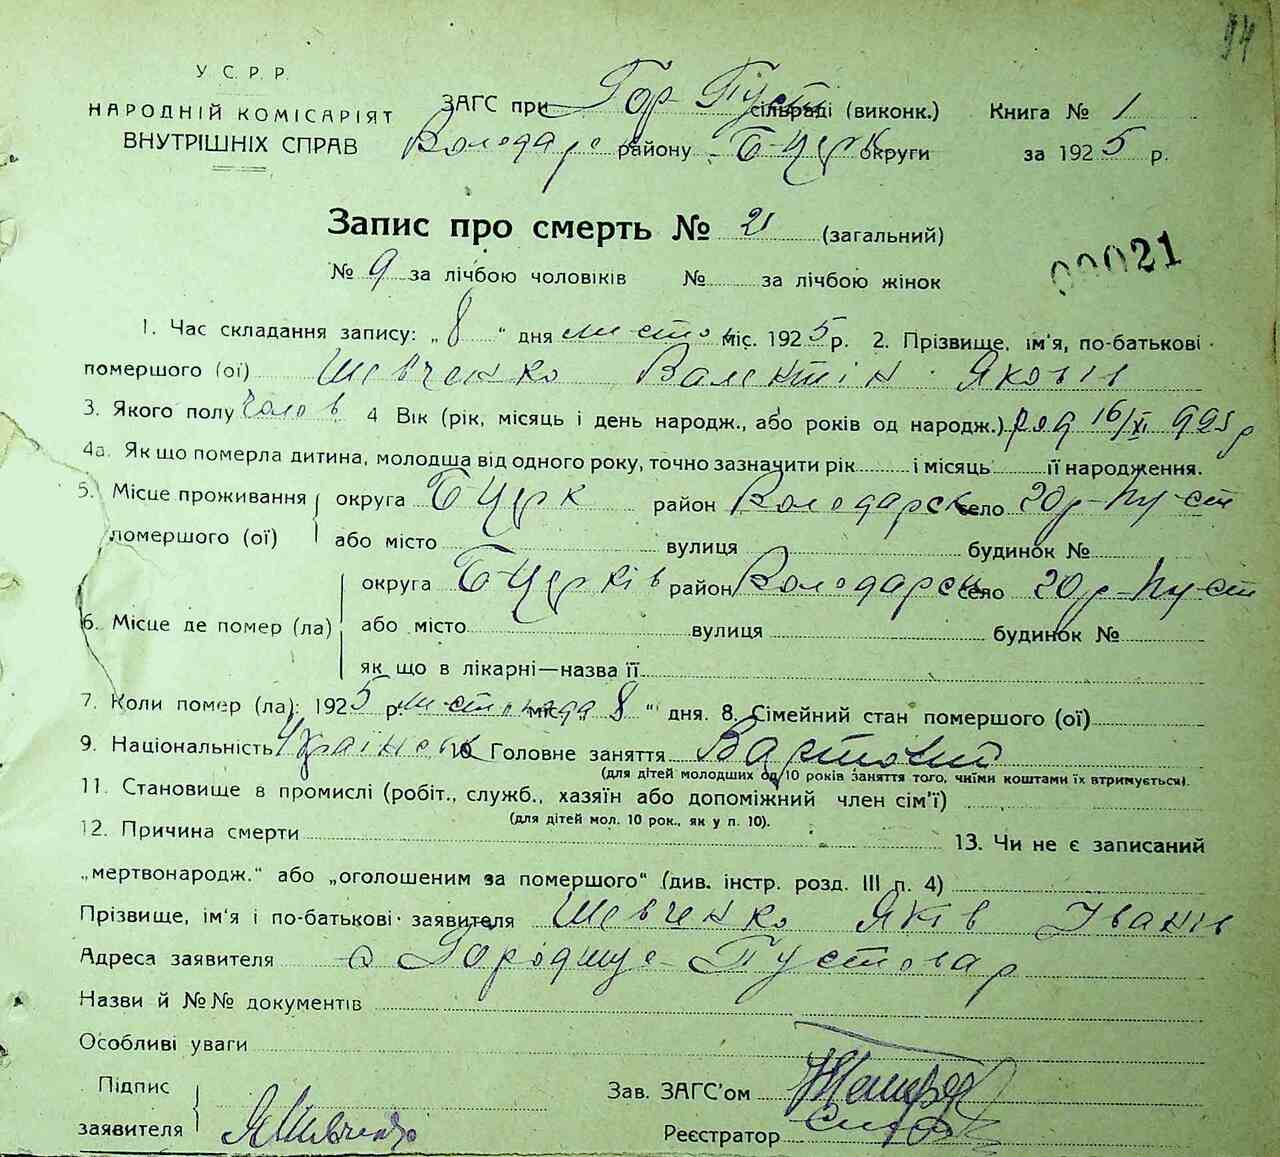 94
У С. Р. Р.
НАРОДНІЙ КОМІСАРІЯТ
ВНУТРІШНІХ СПРАВ
ЗАГС при Гор-Пуст сільраді (виконк.) Книга № 1
Володарс району Б-Церк округи за 1925 р.
Запис про смерть № 21 (загальний)
00021
№ 9 за лічбою чоловіків № за лічбою жінок
1. Час складання запису: „8“ дня листоп міс. 1925 р. 2. Прізвище, ім'я, по-батькові
помершого (ої) Шевченко Валентін Яковів
3. Якого полу Чолов 4 Вік (рік, місяць і день народж., або років од народж.) род 16/XI 925 р
4а. Як що померла дитина, молодша від одного року, точно зазначити рік і місяць її народження.
5. Місце проживання округа Б-Церк район Володарськ село Гор-Пуст
помершого (ої) або місто вулиця будинок №
округа Б-Церків район Володарськ село Гор-Пуст
6. Місце де помер (ла) або місто вулиця будинок №
як що в лікарні—назва її
7. Коли помер (ла): 1925 р. листопада міс. „8“ дня. 8. Сімейний стан помершого (ої)
9. Національність Українськ 10 Головне заняття Вартовий
(для дітей молодших од 10 років заняття того, чиїми коштами їх втримується).
11. Становище в промислі (робіт., служб., хазяїн або допоміжний член сім'ї)
(для дітей мол. 10 рок., як у п. 10).
12. Причина смерти 13. Чи не є записаний
„мертвонародж.“ або „оголошеним за помершого“ (див. інстр. розд. III п. 4)
Прізвище, ім'я і по-батькові заявителя Шевченко Яків Іванів
Адреса заявителя с Городище-Пустовар
Назви й №№ документів
Особливі уваги
Підпис
заявителя ЯШевченко
Зав. ЗАГС'ом
Реєстратор